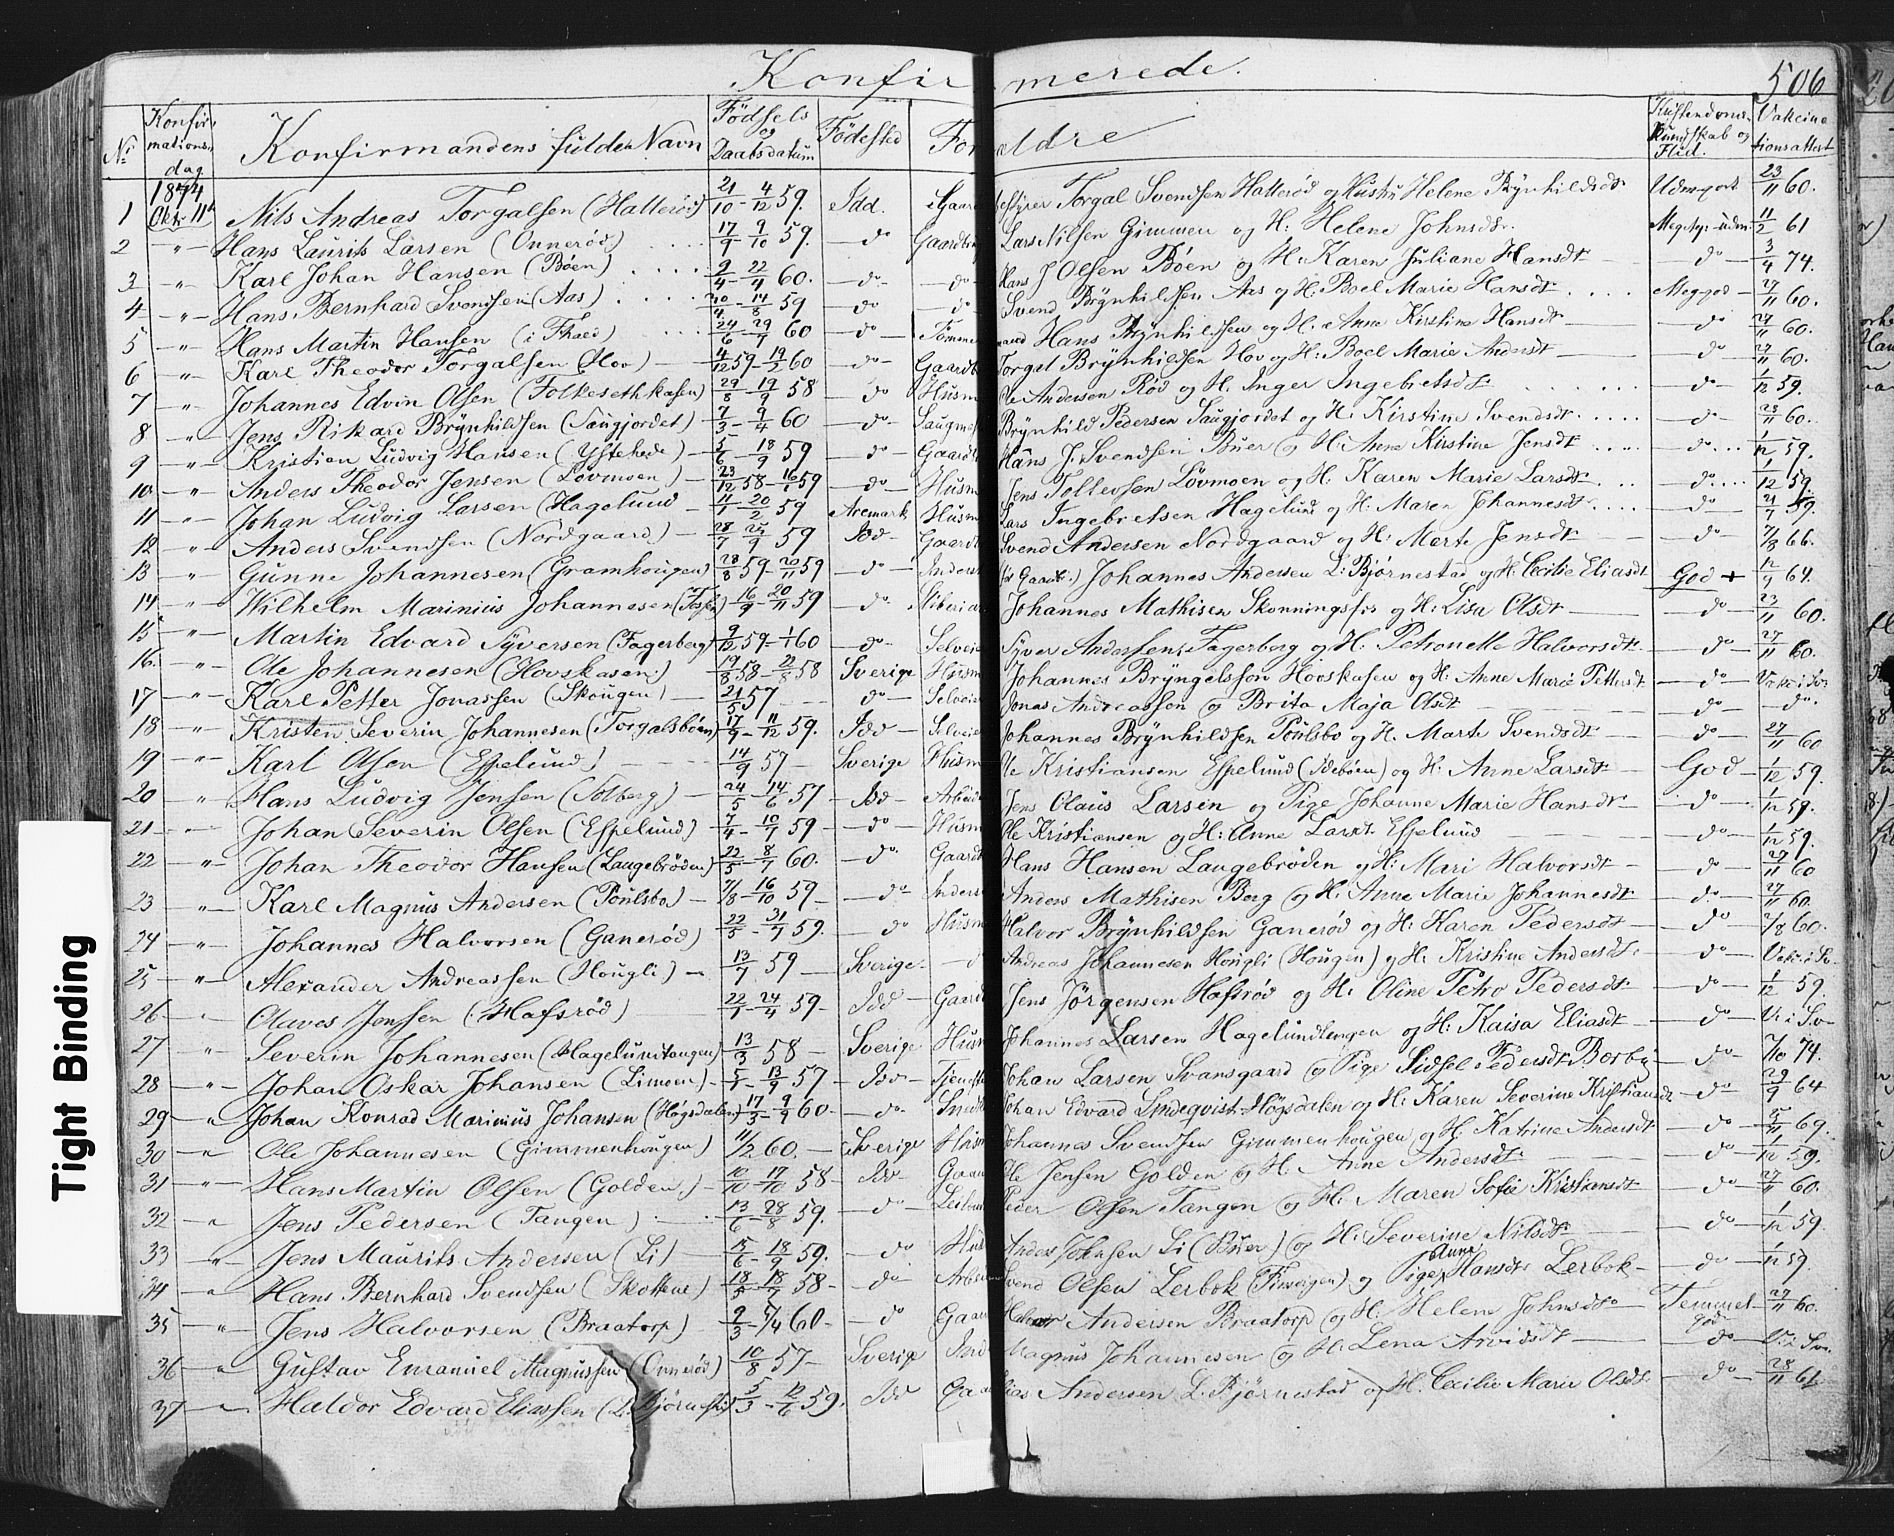 Konfirmerede.
506
Tight Binding
No Konfirmationsdag Konfirmandens fulde Navn Födsels og Daabsdatum Födested Forældre Kristendoms Kundskab og Flid. Vakcinationsattest
1874
1 Oktr 11te Nils Andreas Torgalsen (Hallerød) 21/10 - 4/12 59. Idd. Torgal Svendsen Hallerød og Helene Brynhildsdt Udmerket 23/11 60.
2 -"- Hans Laurits Larsen (Onnerød) 17/9 - 9/10 59. do Lars Nilsen Gimmen og H: Helene Johnsdt. 11/2 61
3 -"- Karl Johan Hansen (Böen) 9/4 - 22/4 60. do do Hans J Olsen Böen og H: Karen Juliane Hansdt do 3/4 74.
4 -"- Hans Bernhard Svendsen (Aas) 14/8 59 do do Svend Brynhildsen Aas og H: Boel Marie Hansdt 27/11 60.
5 -"- Hans Martin Hansen 24/6 - 29/7 60 do Hans Brynhildsen og H. Anne Kirstine Hansdt do 27/11 60.
6 -"- Karl Theodor Torgalsen (Hov) 4/12 59 - 19/2 60 do Torgal Brynhildsen Hov og H: Boel Marie Andersdt do 27/11 60.
7 -"- Johannes Edvin Olsen 29/8 - 19/9 58 do Husm Ole Andersen Röd og H. Inger Ingebretsdt do 1/12 59.
8 -"- Jens Rikard Brynhildsen (Saugjordet) 7/3 - 9/4 60 do Brynhild Pedersen Saugjordet og H: Kirstine Svendsdt do 28/11 60.
9 -"- Kristian Ludvig Hansen 5/6 - 18/9 59 do Hans J. Svendsen Buer og H: Anne Kirstine Jensdt do 1/12 59.
10 -"- Anders Theodor Jensen (Lövmoen) 23/12 58 - 16/1 59 do Husm Jens Tollevsen Lövmoen og H: Karen Marie Larsdt. do 1/12 59.
11 -"- Johan Ludvig Larsen (Hagelund 4/1 - 20/2 59 Aremark Husm Lars Ingebretsen Hagelund og H: Maren Johannesdt. do 21/7 59.
12 -"- Anders Svendsen (Nordgaard) 28/7 - 25/9 59 Idd Svend Andersen Nordgaard og H: Marte Jensdt do 7/8 66.
13 -"- Gunne Johannesen (Gramhougen) 28/8 59 - 20/11 59 do Johannes Andersen L: Björnestad og H: Cecilie Eliasdt God + 12/9 64.
14 -"- Wilhelm Marinius Johannesen 16/9 - 20/11 59 do Johannes Mathisen Skonningsfos og H: Lisa Olsdt do 23/11 60.
15 -"- Martin Edvard Syversen (Fagerberg) 9/12 59 - 1/1 60 do Syver Andersen, Fagerberg og H. Petronelle Halvorsdt. do 27/11 60.
16. -"- Ole Johannesen (Hovskasen) 19/8 58 - 22/8 58 Sverige Husm Johannes Bryngelsson Hovskasen og H: Anne Marie Pettersdt do
17 -"- Karl Petter Jonassen (Skougen) 21/5 57 do Jonas Andreassen og Brita Maja Olsdt do do.
18 -"- Kristen Severin Johannesen (Torgalsböen) 17/9 - 11/12 59. Idd Johannes Brynhildsen Poulsbo og H. Marte Svendsdt do 27/11 60
19 -"- Karl Olsen (Espelund) 14/9 57 Sverige Husm Ole Kristiansen Espelund (Ideböen) og H: Anne Larsdt God 1/12 59.
20 -"- Hans Ludvig Jensen (Solberg) 24/5 - 14/6 57 Idd Jens Olaus Larsen og Pige Johanne Marie Hansdt do 1/12 59.
21 -"- Johan Severin Olsen (Espelund) 7/4 - 10/7 59 do Husm Ole Kristiansen og H: Anne Larsdt. Espelund do 1/12 59.
22 -"- Johan Theodor Hansen (Langebröden) 22/5 - 8/7 60. do Hans Hansen Langebröden og H: Mari Halvorsdt do 27/11 60
23 -"- Karl Magnus Andersen (Poulsbo) 7/8 - 16/10 59 do Anders Mathisen Berg og H: Anne Marie Johannesdt do 27/11 60.
24 -"- Johannes Halvorsen (Ganerød) 22/5 - 31/7 59. do Husm Halvor Brynhildsen Ganerød og H: Karen Pedersdt do 2/8 60.
25 -"- Alexander Andreassen (Hougli) 13/7 59 Sverige. Andreas Johannesen Hougli (Hougen) og H. Kristine Andersdt. do
26 Olaves Jensen (Hafsrød) 22/1 - 24/4 59 Idd Jens Jörgensen Hafsrød og H: Oline Petro Pedersdt do 1/12 59
27 " Severin Johannesen (Hagelundtangen) 13/3 58 Sverige Husm Johannes Larsen Hagelundtangen og H: Kaisa Eliasdt do
28 " Johan Oskar Johansen (Limoen) 5/1 - 13/9 57 Idd Johan Larsen Svansgaard og Pige Sidsel Pedersdt. Borby do 7/10 74.
29 " Johan Konrad Marinius Johansen (Högsdalen) 17/3 - 9/9 60 do Johan Edvard Lindeqvist Högsdalen og H: Karen Severine Kristiansdt do 29/9 64
30 " Ole Johannesen (Gimmenhougen) 11/2 60. Sverige Husm Johannes Svendsen Gimmenhougen og H. Katrine Andersdt do
31 -"- Hans Martin Olsen (Golden) 10/10 - 17/10 58 Idd Ole Jensen Golden og H. Anne Andersdt. do 1/12 59.
32 " Jens Pedersen (Tangen) 13/6 - 28/8 59. do Peder Olsen Tangen og H: Maren Sofie Kristensdt do 27/11 60.
33 " Jens Maurits Andersen (Li) 15/6 - 18/9 59. do Anders Johnsen Li (Buer) og H: Severine Nilsdt do 1/12 59.
34 " Hans Bernhard Svendsen 18/5 - 18/7 58 do Svend Olsen Lerbok og Pige Anne Hansdt Lerbok do 1/12 59.
35 " Jens Halvorsen (Braatorp) 2/3 - 9/4 60 do Halvor Andersen Braatorp og H. Helene Johnsdt Temmel. god 27/11 60.
36 " Gustav Emanuel Magnussen (Onnerød) 10/8 57 Sverige Magnus Johannesen og H. Lena Arvidsdt do
37 " Haldor Edvard Eliassen 5/3 - 12/6 59. Idd Elias Andersen L. Björnestad og H. Cecilie Marie Olsdt. do 28/11 61